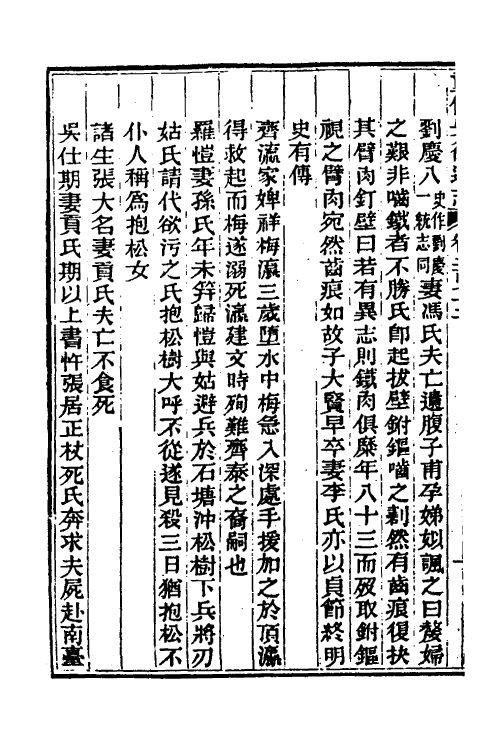 劉慶八史作劉慶一統志同妻馮氏夫亡遺腹子甫孕娣姒諷之曰嫠婦
之艱非嚙鐵者不勝氏卽起拔壁鈄鏂嚙之剨然有齒痕復抉
其臂肉釘壁曰若有異志則鐵肉俱糜年八十三而歿取鈄鏂
視之臂肉宛然齒痕如故子大賢早卒妻李氏亦以貞節終明
史有傳
齊瀛家婢祥梅瀛三歲墮水中梅急入深處手援加之於頂瀛
得救起而梅遂溺死瀛建文時殉難齊泰之裔嗣也
羅愷妻孫氏年未笄歸愷與姑避兵於石塘沖松樹下兵將刃
姑氏請代欲污之氏抱松樹大呼不從遂見殺三日猶抱松不
仆人稱爲抱松女
諸生張大名妻貢氏夫亡不食死
吳仕期妻貢氏期以上書忤張居正杖死氏奔求夫屍赴南臺